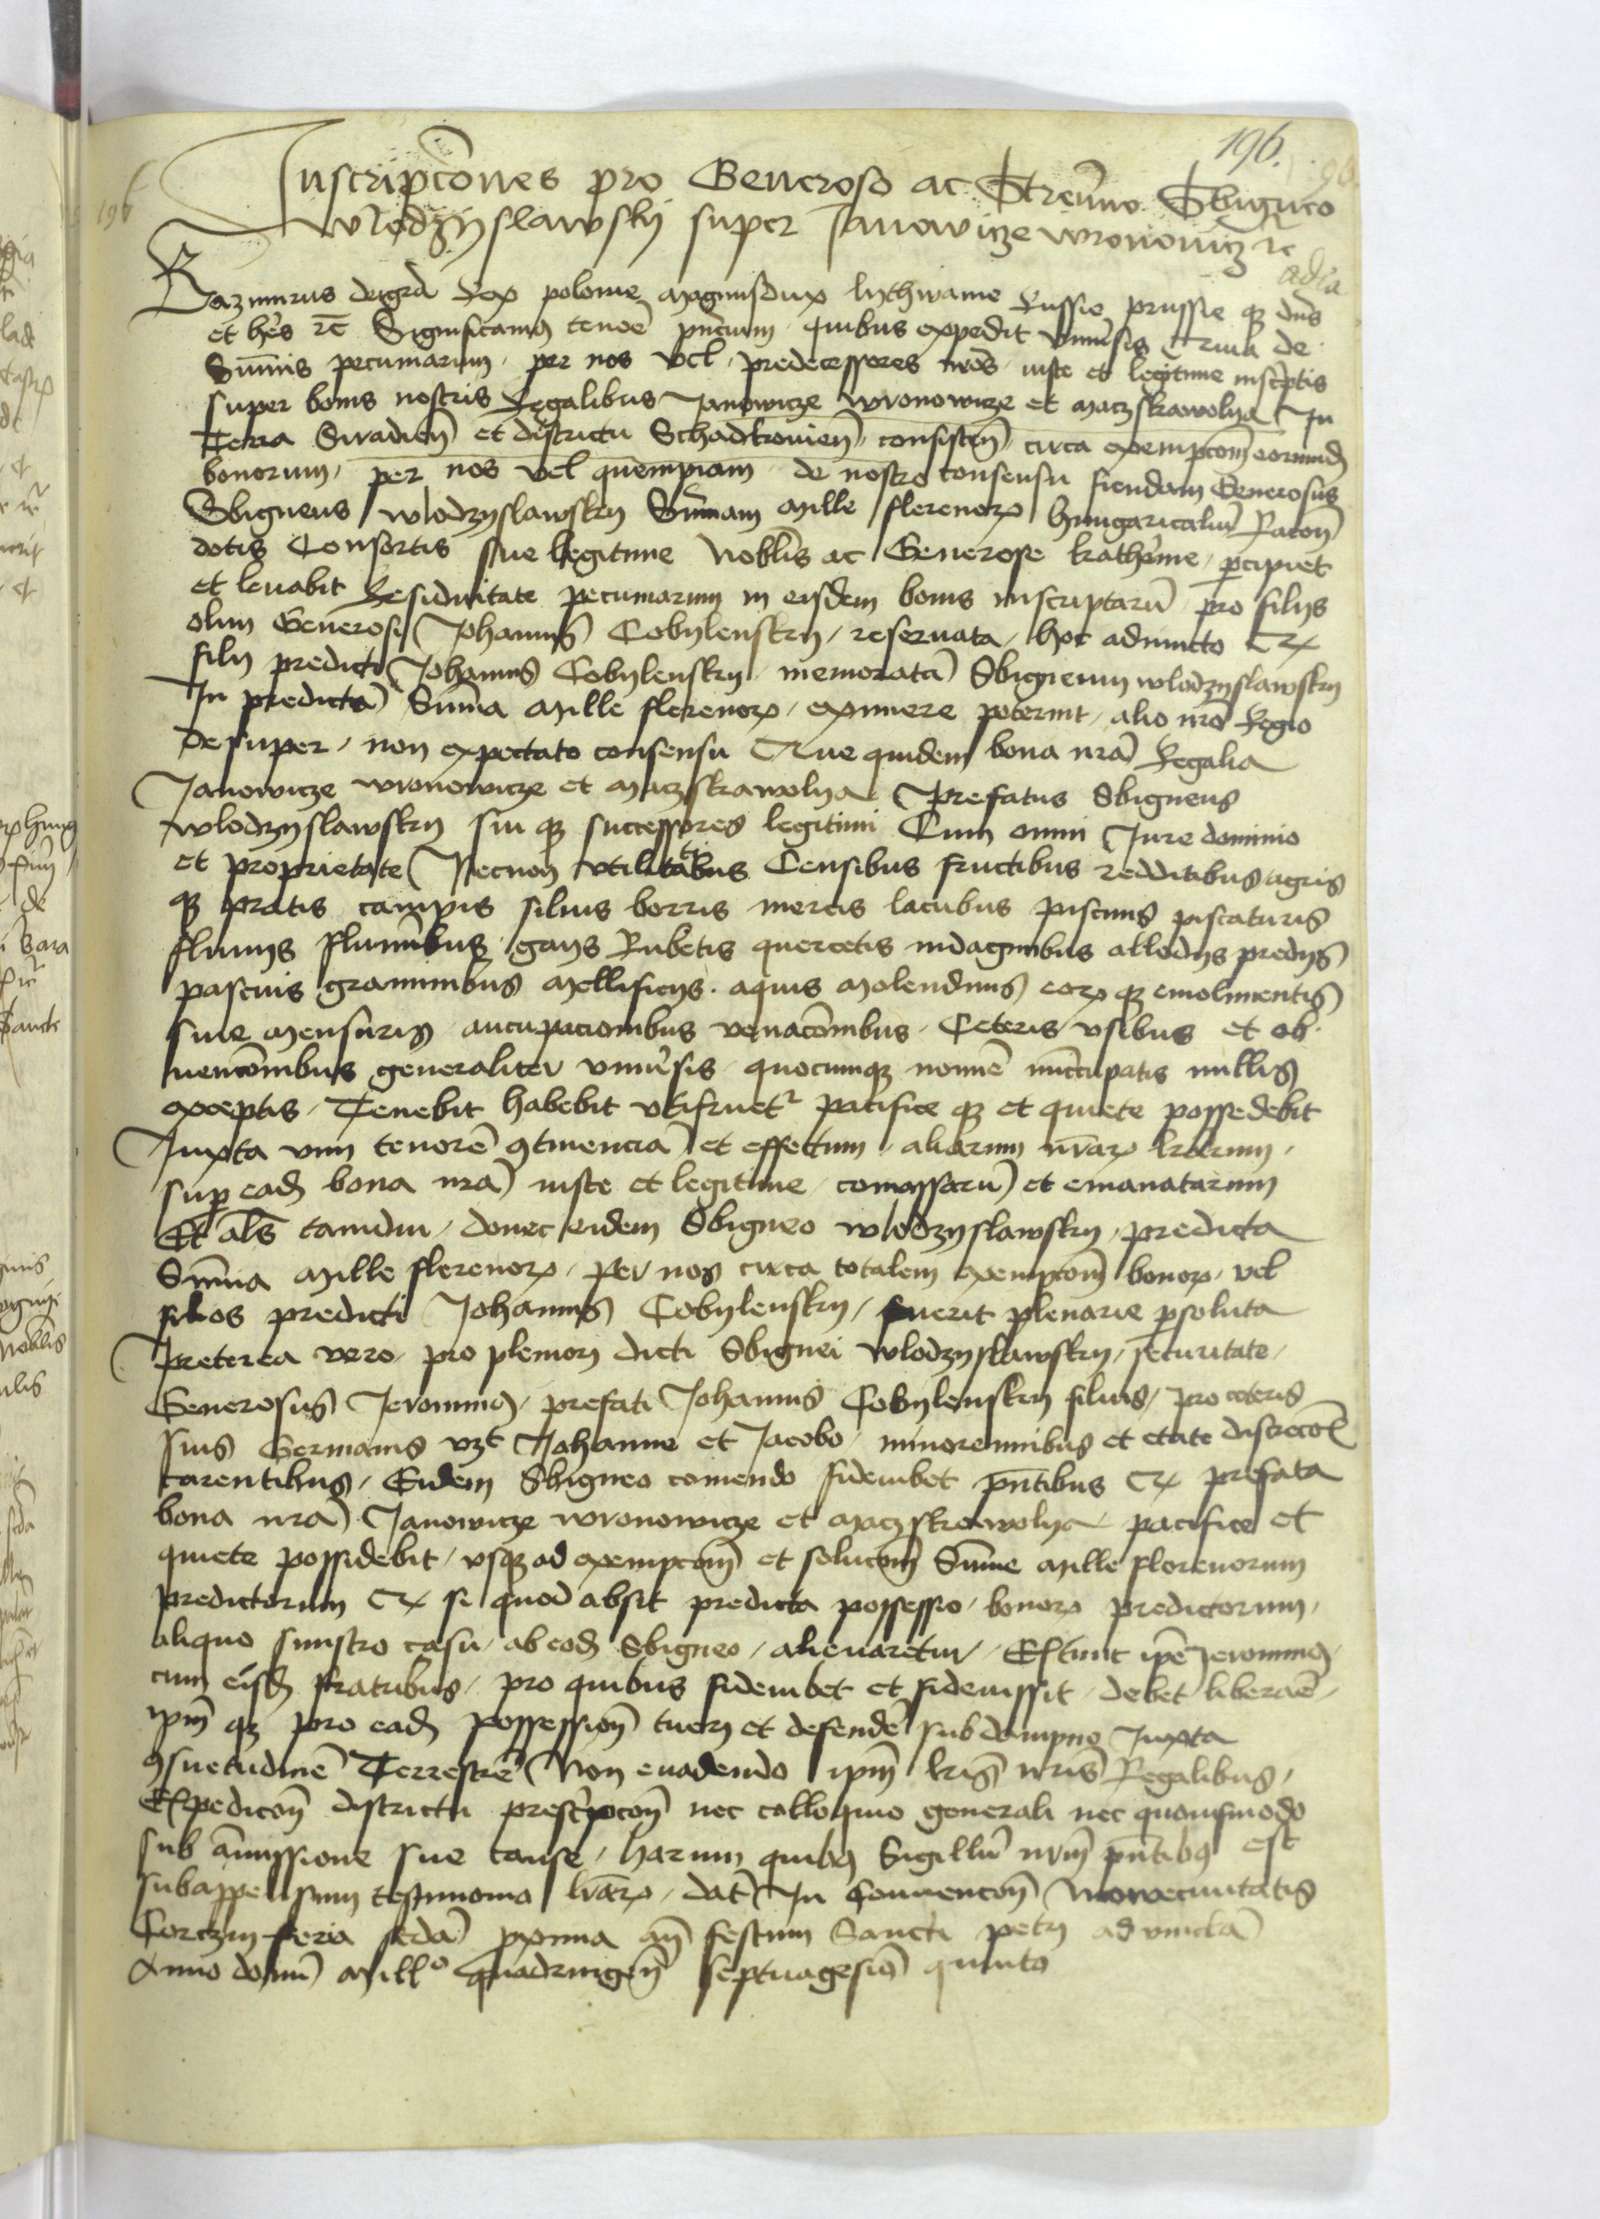 196.
Inscripcōnes pro Generoso ac Strēnuo Sbigneo
Wlodzijslawskij super Janowicze wronowicz rc
Kazimirus deigrā Rex polonie Magnusdux lythwanie Russie prussie qz dn̄s
et hēs rc̄ Significam9 tenōe pn̄cium quibus expedit vniūsis Quia de
Sum̄is pecuniarum per nos vel predecessores nrōs iuste et legitime inscr̄ptis
super bonis nostris Regalibus Janowicze wronowicze et maczskawolya In
Terra Siradieñ et districtu Schadkovieñ consisteñ circa exempcōm eorund
bonorum per nos vel quempiam de nostro consensu fiendam Generosus
Sbigneus wlodzyslawsky Sum̄am Mille florenorz hungaricaliū Racoñ
dotis Consortis sue legitime Nobīlis ac Generose kathēine percipiet
et levabit Residuitate pecuniarum in eisdem bonis inscriptarū pro filijs
olim Generosi Johannis Cobylensky reservata hoc adiuncto Qz
filij predicti Johannis Cobylensky memoratū Sbigneum wlodzyslawsky
In predicta Sum̄a Mille florenorz eximere poterint alio nr̄o Regio
desuper non expectato consensu Que quidem bona nrā Regalia
Janowicze wronowicze et maczskawolya Prefatus Sbigneus
wlodzyslawsky sui qz successores legitimi Cum omni Jure dominio
et proprietate Necnon vtilitatibus Censibus fructibus redditibus agris
qz pratis campis siluis borris mericis lacubus piscinis piscaturis
fluuijs flumībus gays Rubetis quercetis indaginibus allodijs predijs
pascuis graminibus Mellificijs aquis Molendinis eorz qz emolimentis
siue Mensuris aucupacionibus venacōnibus Ceteris vsibus et ob
uencōnibus generaliter vniūsis quocumqz nomīe nūccupatis nullis
exceptis Tenebit habebit vtifruetr pacifice qz et quiete possedebit
Juxta vim tenorē 9tinenciā et effectum aliarum nrārz lrārum
sup eađ bona nrā iuste et legitime concessarū et emanatarum
Et alīs tamdiu donec eidem Sbigneo wlodzyslawsky predicta
Sum̄a Mille florenorz Per nos circa totalem exempcōm bonorz vel
filios predicti Johannis Cobylensky fuerit plenarie psoluta
Preterea vero pro pleniori dicti Sbignei wlodzyslawsky securitate
Generosus Jeronim9 prefati Johannis Cobylensky filius pro ceteris
suis Germanis vzt Johanne et Jacobo minorennibus et etate discrecōis
carentibus Eidem Sbigneo comendo fideiubet pn̄tibus Qz prefata
bona nrā Janowicze wronowicze et maczskawolya pacifice et
quiete possidebit vsqz ad exempcōm et solucōm Sum̄e Mille florenorum
predictorum Qz si quod absit predicta possessio bonorz predictorum
aliquo sinistro casu ab eođ Sbigneo alienaretur Extunc ipē Jeronim9
cum eisđ fratribus pro quibus fideiubet et fideiussit debet liberāe
ipm̄ qz pro eađ possessioñ tueri et defendē sub dampno Juxta
9suetudinē Terrestrē Non euadendo ipm̄ lrīs nrīs Regalibus
Expedicōñ districtu prescr̄pcōñ nec colloquio generali nec quouismodo
sub am̄issione sue cause harum quib9 Sigillū nrm̄ pn̄tib9 est
subappensum testimonio lrārz dat̄ In Conuencōñ Nouecivitatis
Corczin feria sc̄da proxima añ festum Sancti petri ad vincla
Anno domī Millo quadringeñ septuagesiō quinto